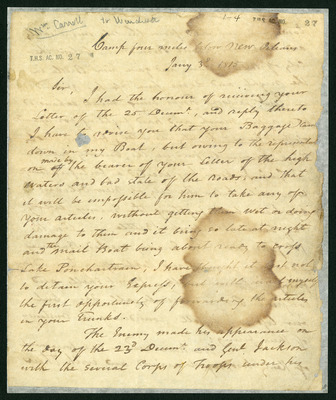 Wm Carroll to Winchester
1-4
T.H.S. AC. NO.
27
T.H.S. AC. NO. 27
Camp four miles below New Orleans
Jany 3d 1815
Sir,
I had the honour of receiving your
letter of the 25 Decemr. and reply thereto
I have to advise you that your Baggage came
down in my Boat, but owing to the representation
made by
on of the bearer of your letter of the high
waters and bad state of the Roads, and that
it will be impossible for him to take any of
your articles, without getting them wet or doing
damage to them and it being so late at night
and the mail Boat being about ready to cross
Lake Ponchartrain, I have thought it not
to detain your Express, and will
the first opportunity of forwarding the articles
in your Trunks.
The Enemy made his appearance on
the day of the 23d Decemr. and Genl Jackson
with the several Corps of Troops under his